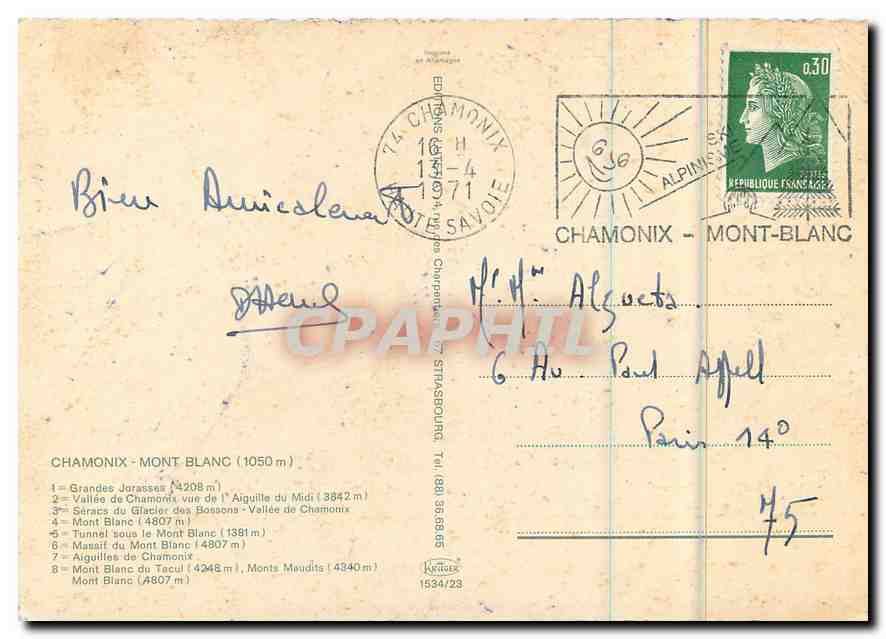 Imprimé
en Allemagne
74 CHAMONIX
16 H
13-4
1971
HTE SAVOIE
0,30
POSTES
REPUBLIQUE FRANÇAISE
ALPINISME
CHAMONIX - MONT-BLANC
Bien Amicalement
Mr. Mme Algueta
6 Av. Paul Appell
Paris 14°
75
CPAPHIL
rue des Charpentiers, 67 STRASBOURG. Tel. (88) 36.68.65
CHAMONIX - MONT BLANC (1050 m)
1 = Grandes Jorasses (4208 m)
2 = Vallée de Chamonix vue de l'Aiguille du Midi (3842 m)
3 = Séracs du Glacier des Bossons - Vallée de Chamonix
4 = Mont Blanc (4807 m)
5 = Tunnel sous le Mont Blanc (1381 m)
6 = Massif du Mont Blanc (4807 m)
7 = Aiguilles de Chamonix
8 = Mont Blanc du Tacul (4248 m), Monts Maudits (4340 m)
Mont Blanc (4807 m)
KRÜGER
1534/23